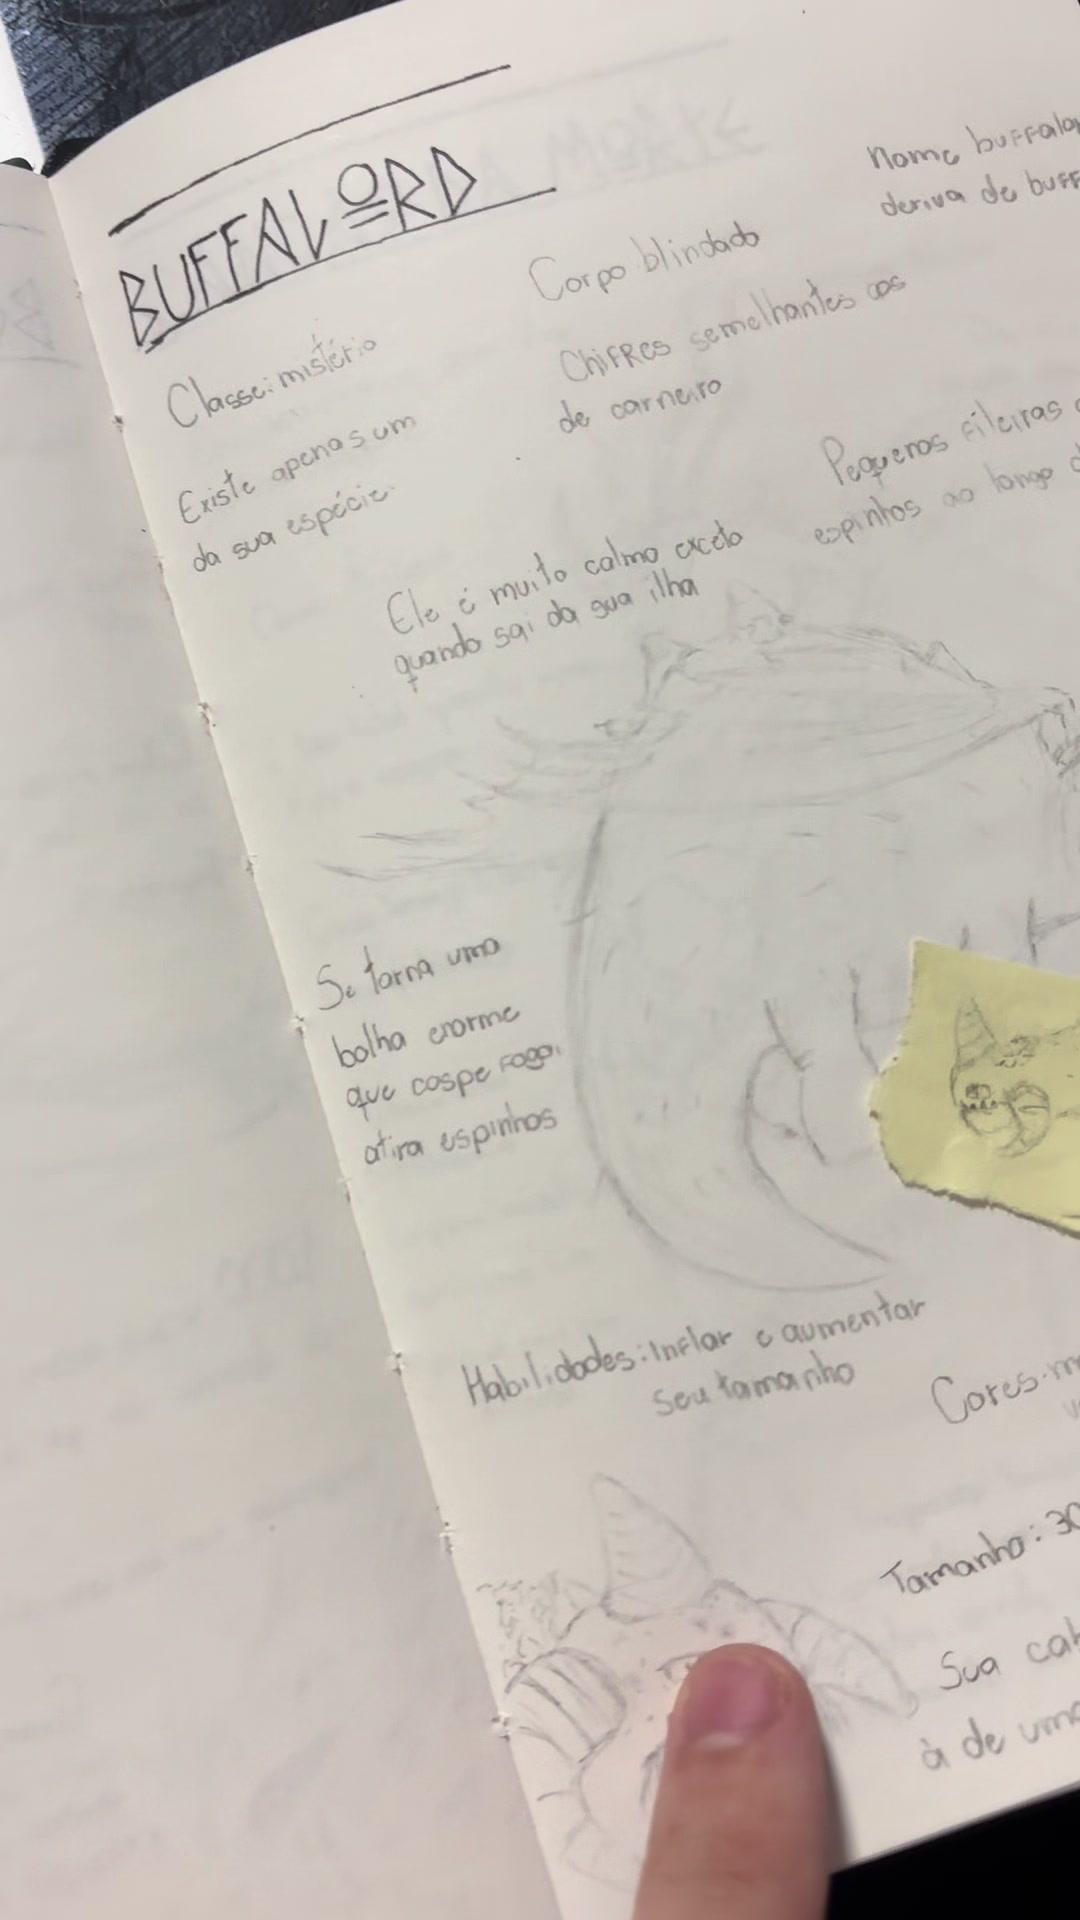 BUFFALORD
nome buffalo
deriva de buff
Corpo blindado
Classe: mistério
Chifres semelhantes aos
de carneiro
Existe apenas um
da sua espécie.
Pequenas fileiras
espinhos ao longo d
Ele é muito calmo exceto
quando sai da sua ilha
Se torna uma
bolha enorme
que cospe fogo,
atira espinhos
Habilidades: Inflar e aumentar
seu tamanho
Cores: m
Tamanho: 30
Sua cab
à de uma